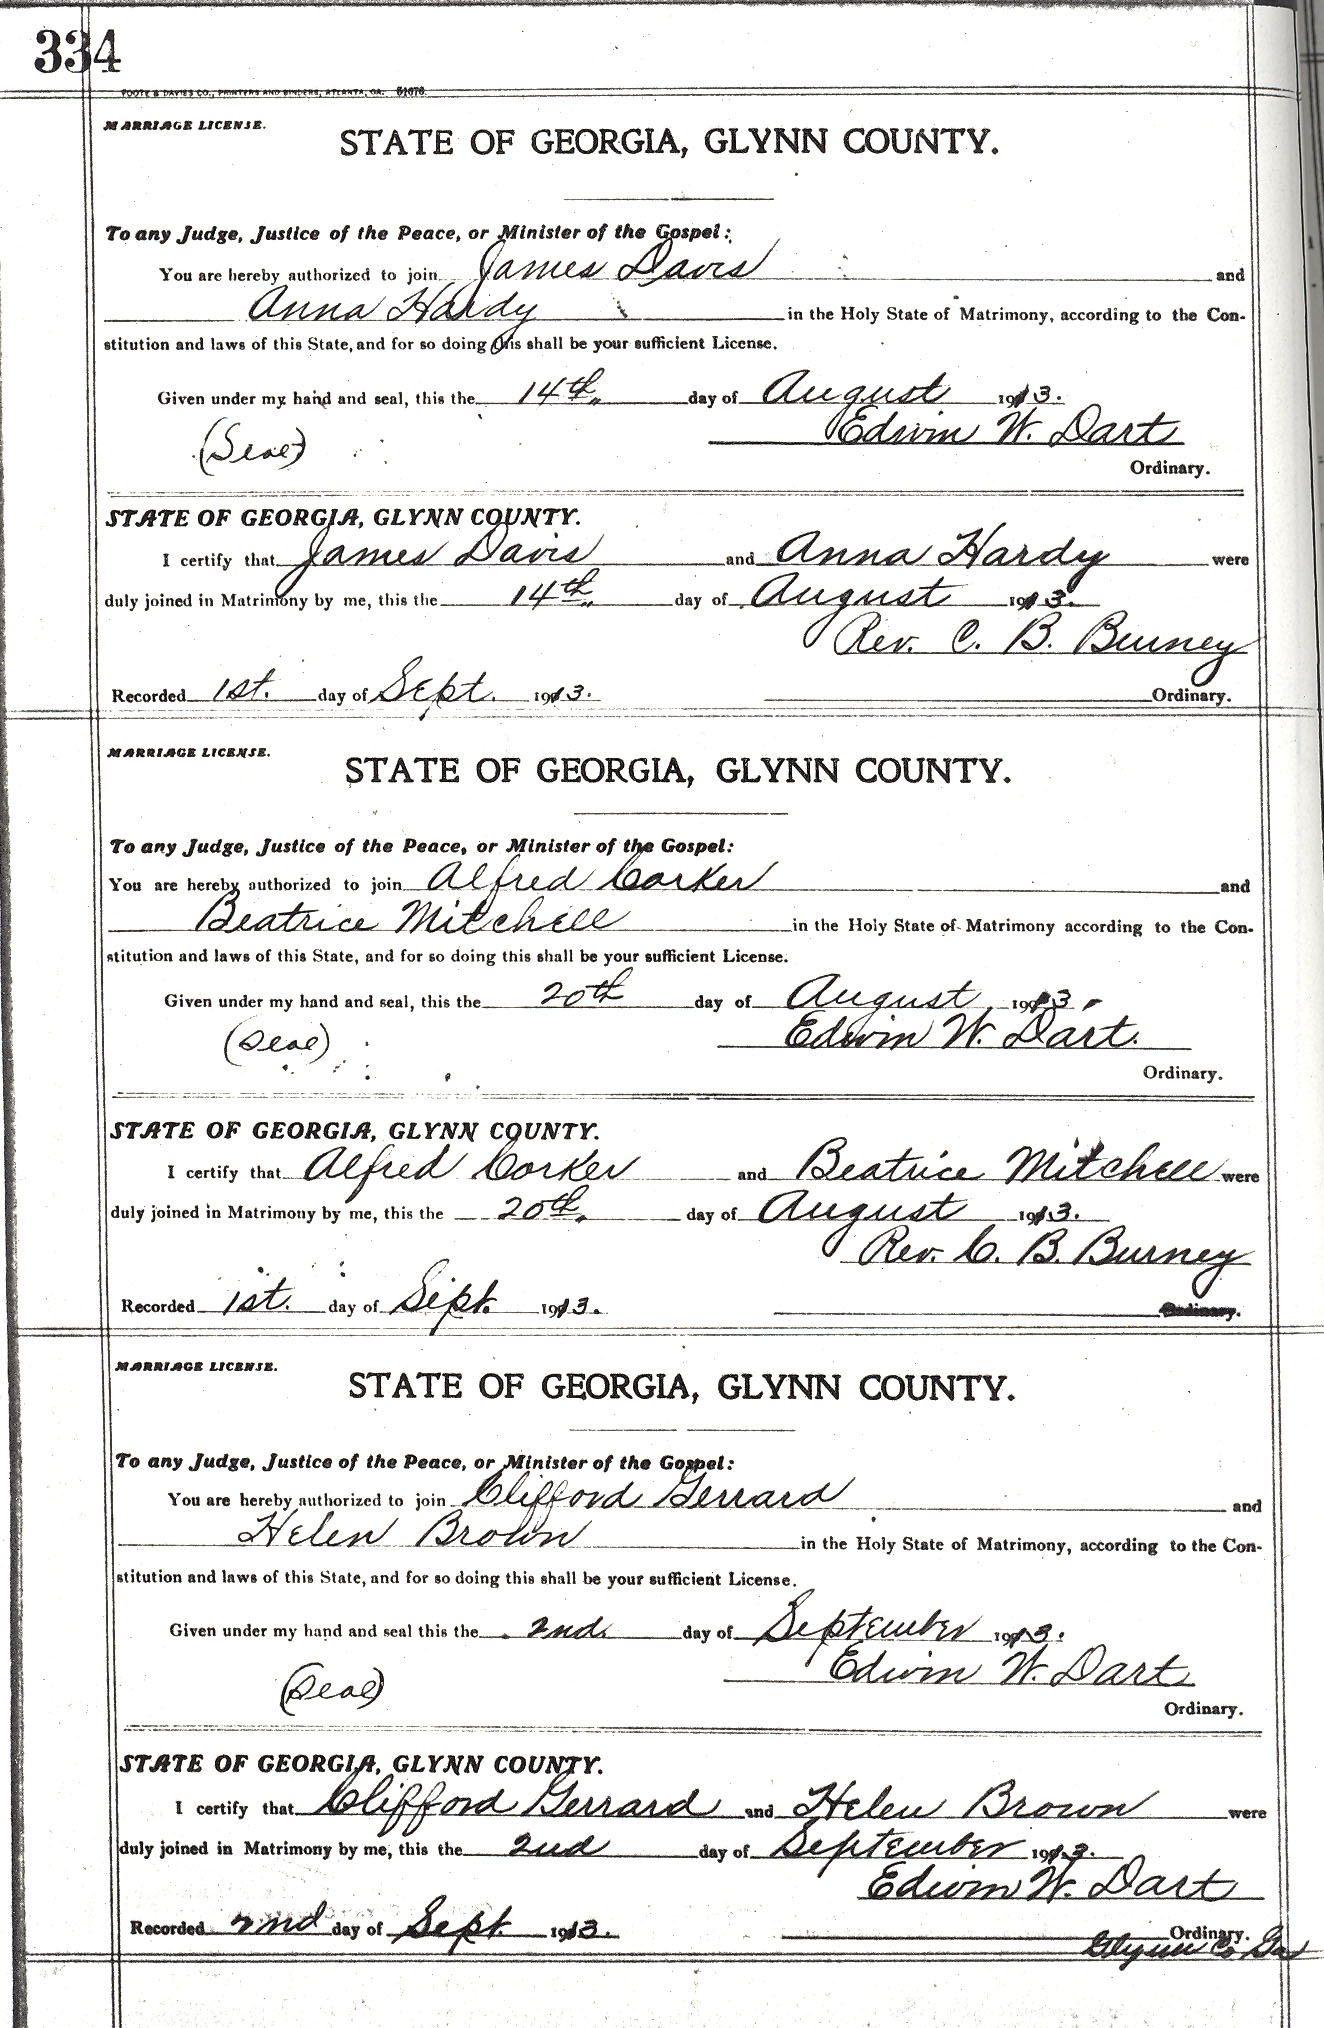 334
FOOTE & DAVIES CO., PRINTERS AND BINDERS, ATLANTA, GA. 51676
MARRIAGE LICENSE.
STATE OF GEORGIA, GLYNN COUNTY.
To any Judge, Justice of the Peace, or Minister of the Gospel:
You are hereby authorized to join James Davis and
Anna Hardy in the Holy State of Matrimony, according to the Con-
stitution and laws of this State, and for so doing this shall be your sufficient License.
Given under my hand and seal, this the 14th day of August 1913.
(Seal) Edwin W. Dart
Ordinary.
STATE OF GEORGIA, GLYNN COUNTY.
I certify that James Davis and Anna Hardy were
duly joined in Matrimony by me, this the 14th day of August 1913.
Rev. C. B. Burney
Recorded 1st. day of Sept. 1913. Ordinary.
MARRIAGE LICENSE.
STATE OF GEORGIA, GLYNN COUNTY.
To any Judge, Justice of the Peace, or Minister of the Gospel:
You are hereby authorized to join Alfred Corker and
Beatrice Mitchell in the Holy State of Matrimony according to the Con-
stitution and laws of this State, and for so doing this shall be your sufficient License.
Given under my hand and seal, this the 20th day of August 1913.
(Seal) Edwin W. Dart.
Ordinary.
STATE OF GEORGIA, GLYNN COUNTY.
I certify that Alfred Corker and Beatrice Mitchell were
duly joined in Matrimony by me, this the 20th. day of August 1913.
Rev. C. B. Burney
Recorded 1st. day of Sept. 1913. Ordinary.
MARRIAGE LICENSE.
STATE OF GEORGIA, GLYNN COUNTY.
To any Judge, Justice of the Peace, or Minister of the Gospel:
You are hereby authorized to join Clifford Gerrard and
Helen Brown in the Holy State of Matrimony, according to the Con-
stitution and laws of this State, and for so doing this shall be your sufficient License.
Given under my hand and seal this the 2nd. day of September 1913.
Edwin W. Dart
(Seal)
Ordinary.
STATE OF GEORGIA, GLYNN COUNTY.
I certify that Clifford Gerrard and Helen Brown were
duly joined in Matrimony by me, this the 2nd day of September 1913.
Edwin W. Dart
Recorded 2nd day of Sept. 1913. Ordinary.
Glynn Co Ga